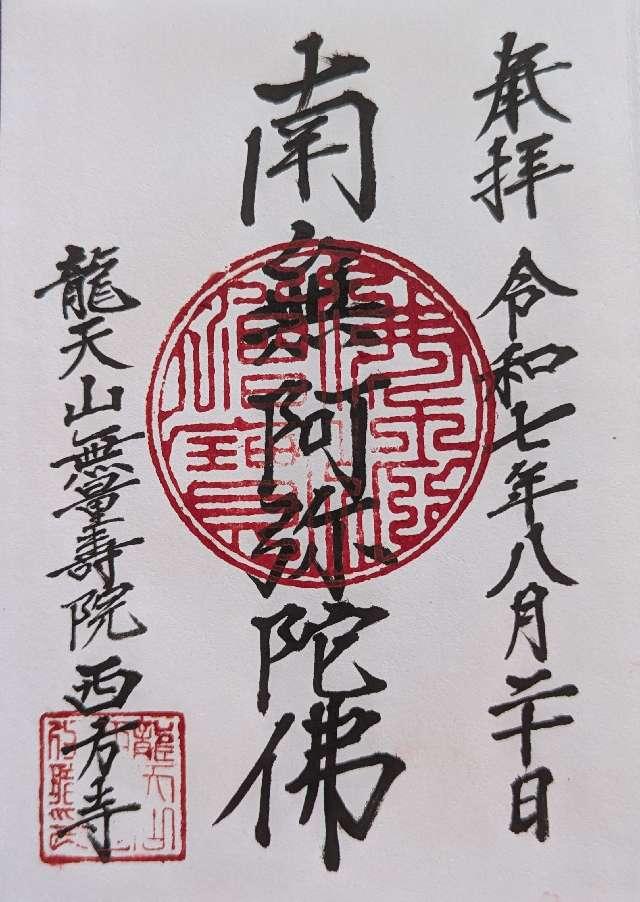 奉拝 令和七年八月二十日
南無阿弥陀佛
龍天山無量壽院 西方寺